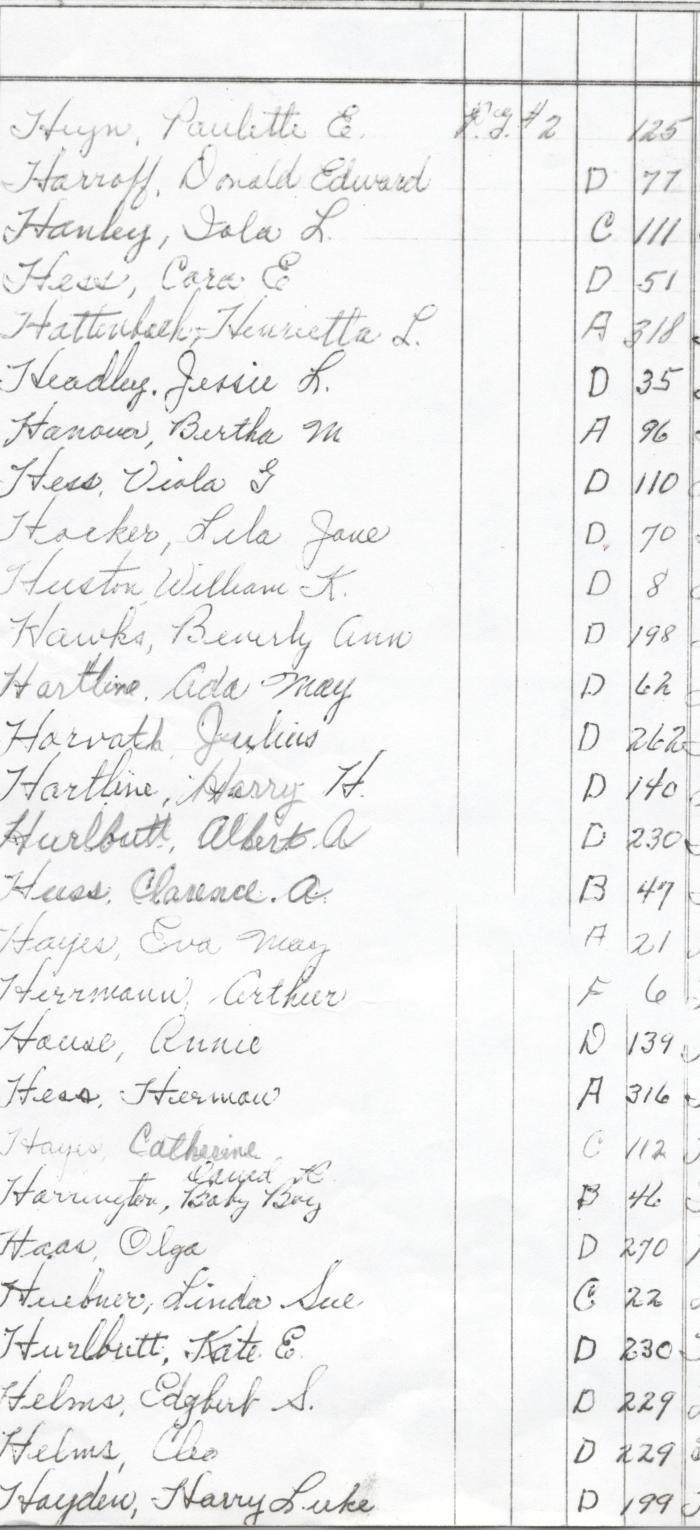 Huyn, Paulette E. #2 125
Harroff, Donald Edward D 77
Hanley, Iola L. C 111
Hess, Cora E D 51
Hattenbach, Henrietta L. A 318
Headley, Jessie L. D 35
Hanova, Bertha M A 96
Hess, Viola G D 110
Hocker, Lila Jane D 70
Huston, William K. D 8
Hawks, Beverly Ann D 198
Hartline, Ada May D 62
Horvath, Julius D 262
Hartline, Harry H. D 140
Hurlbutt, Albert A D 230
Huss, Clarence A. B 47
Hayes, Eva May A 21
Herrmann, Arthur F 6
House, Annie D 139
Hess, Herman A 316
Hayes, Catherine C 112
David
Harrington, Baby Boy B 46
Haas, Olga D 270
Huebner, Linda Sue C 22
Hurlbutt, Kate E. D 230
Helms, Edgbert S. D 229
Helms, Cleo D 229
Hayden, Harry Luke D 199